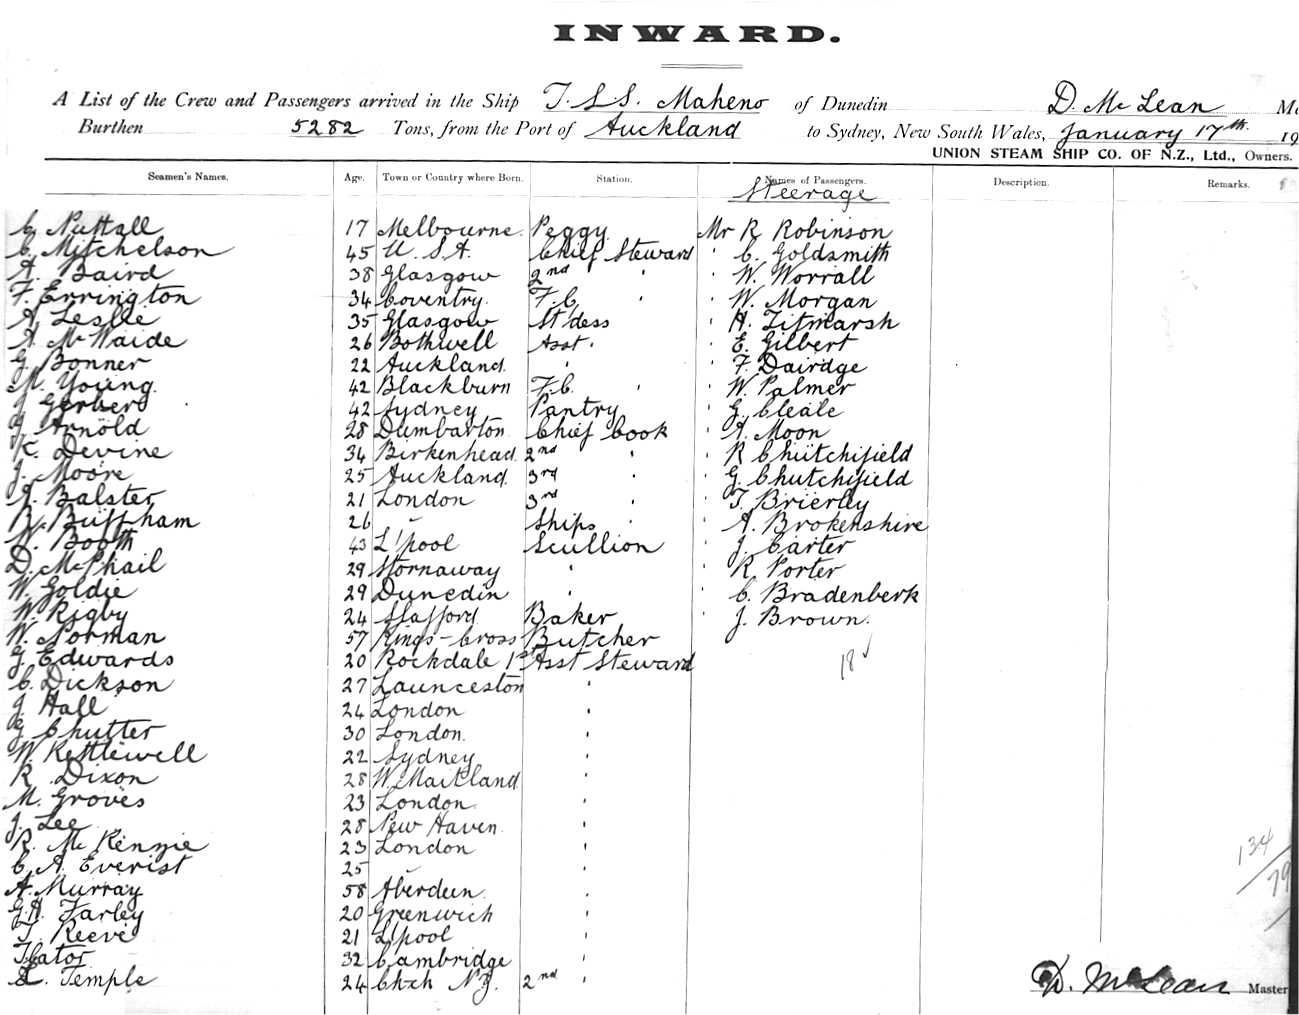 INWARD.
A List of the Crew and Passengers arrived in the Ship T.S.S. Maheno of Dunedin D. McLean
Burthen 5282 Tons, from the Port of Auckland to Sydney, New South Wales, January 17th. 19
UNION STEAM SHIP CO. OF N.Z., Ltd., Owners.
Seamen's Names. Age. Town or Country where Born. Station. Names of Passengers. Description. Remarks.
Steerage
C. Nuttall 17 Melbourne. Peggy Mr R Robinson
C. Mitchelson 45 U.S.A. Chief Steward " C. Goldsmith
A. Baird 38 Glasgow 2nd " " W. Worrall
F. Errington 34 Coventry. F.C. " " W. Morgan
A Leslie 35 Glasgow St'dess " H. Titmarsh
A. McWaide 26 Bothwell Asst. " E. Gilbert
G. Bonner 22 Auckland. " F. Dairdge
M. Young. 42 Blackburn F.C. " " W. Palmer
J. Gerberd 42 Sydney Pantry " G. Cleale
J. Arnold 28 Dumbarton Chief Cook " A. Moon
K. Devine 34 Birkenhead 2nd " " R Chutchifield
J. Moore 25 Auckland 3rd " " G. Chutchifield
A. Balster 21 London 3rd " " T. Brierley
R. Buffham 26 " Ships " " A. Brokenshire
W. Booth 43 L'pool Scullion " J. Carter
D. McPhail 29 Stornaway " " R. Porter
W. Goldie 29 Dunedin " " C. Bradenberk
W Rigby 24 Stafford Baker " J. Brown.
W. Norman 57 Kings-Cross Butcher
J. Edwards 20 Rockdale 1st Asst Steward 18
C. Dickson 27 Launceston "
J. Hall 24 London "
G Chutter 30 London. "
W. Kettlewell 22 Sydney "
R. Dixon 28 W. Maitland "
M. Groves 23 London. "
J. Lee 28 New Haven. "
R. McKenzie 23 London "
C. A. Everist 25 " "
A. Murray 58 Aberdeen. "
G.H. Farley 20 Greenwich "
T. Reeve 21 L'pool "
T Cator 32 Cambridge "
L. Temple 24 Ch.ch N.Z. 2nd "
134
79
D. McLean Master